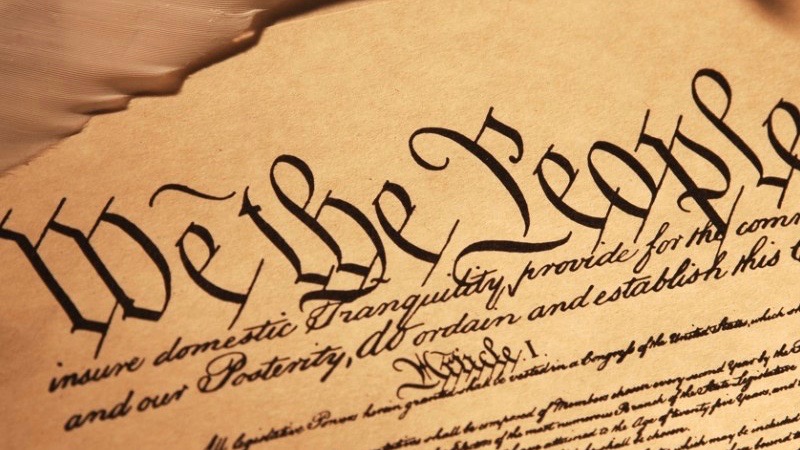 We the People
insure domestic Tranquility, provide for the comm
and our Posterity, do ordain and establish this C
Article. I.
All legislative Powers herein granted shall be vested in a Congress of the United States, which sh
shall be composed of Members chosen every second Year by the
of the most numerous Branch of the State Legislature
attained to the Age of twenty five Years, and
shall be chosen.
which may be included